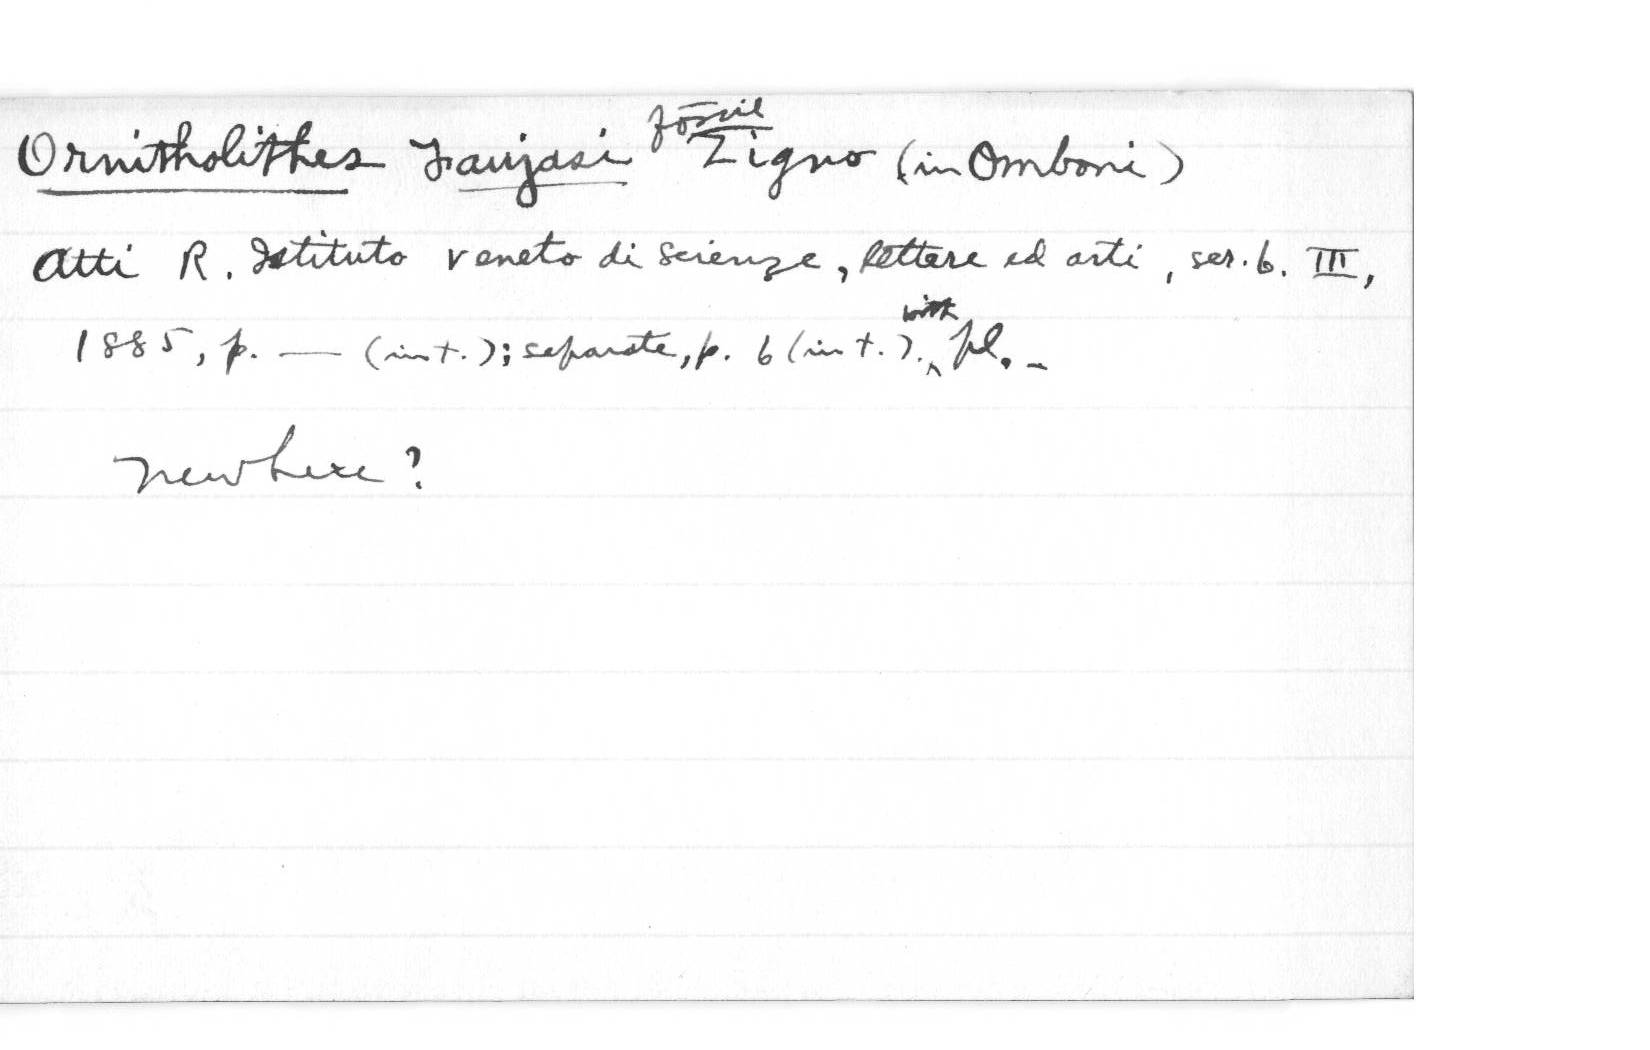 fossil
Ornitholithes Faujasi Zigno (in Omboni)
Atti R. Istituto veneto di scienze, lettere ed arti, ser. 6. III,
1885, p. — (in t.); separate, p. 6 (in t.). with pl. -
new here?